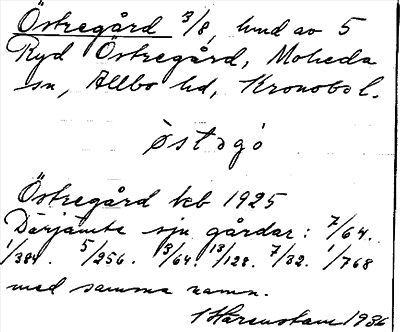 Östregård 3/8, hmd av 5
Ryd Östregård, Moheda
sn, Allbo hd, Kronobo l.
östəgó
Östregård kb 1925
Därjämte sju gårdar: 7/64.
1/384. 5/256. 3/64. 13/128. 7/32. 1/768
med samma namn.
1936